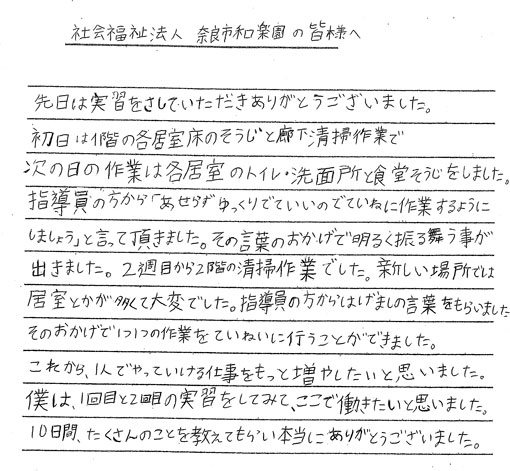 社会福祉法人 奈良市和楽園の皆様へ
先日は実習をさしていただきありがとうございました。
初日は1階の各居室床のそうじと廊下清掃作業で
次の日の作業は各居室のトイレ・洗面所と食堂そうじをしました。
指導員の方から「あせらずゆっくりでていいのでていねに作業するように
しましょう」と言って頂きました。その言葉のおかげで明るく振る舞う事が
出きました。2週目から2階の清掃作業でした。新しい場所では
居室とかが多くて大変でした。指導員の方からはげましの言葉をもらいました
そのおかげで1つ1つの作業をていねいに行うことができました。
これから、1人でやっていける仕事をもっと増やしたいと思いました。
僕は、1回目と2回目の実習をしてみて、ここで働きたいと思いました。
10日間、たくさんのことを教えてもらい本当にありがとうございました。